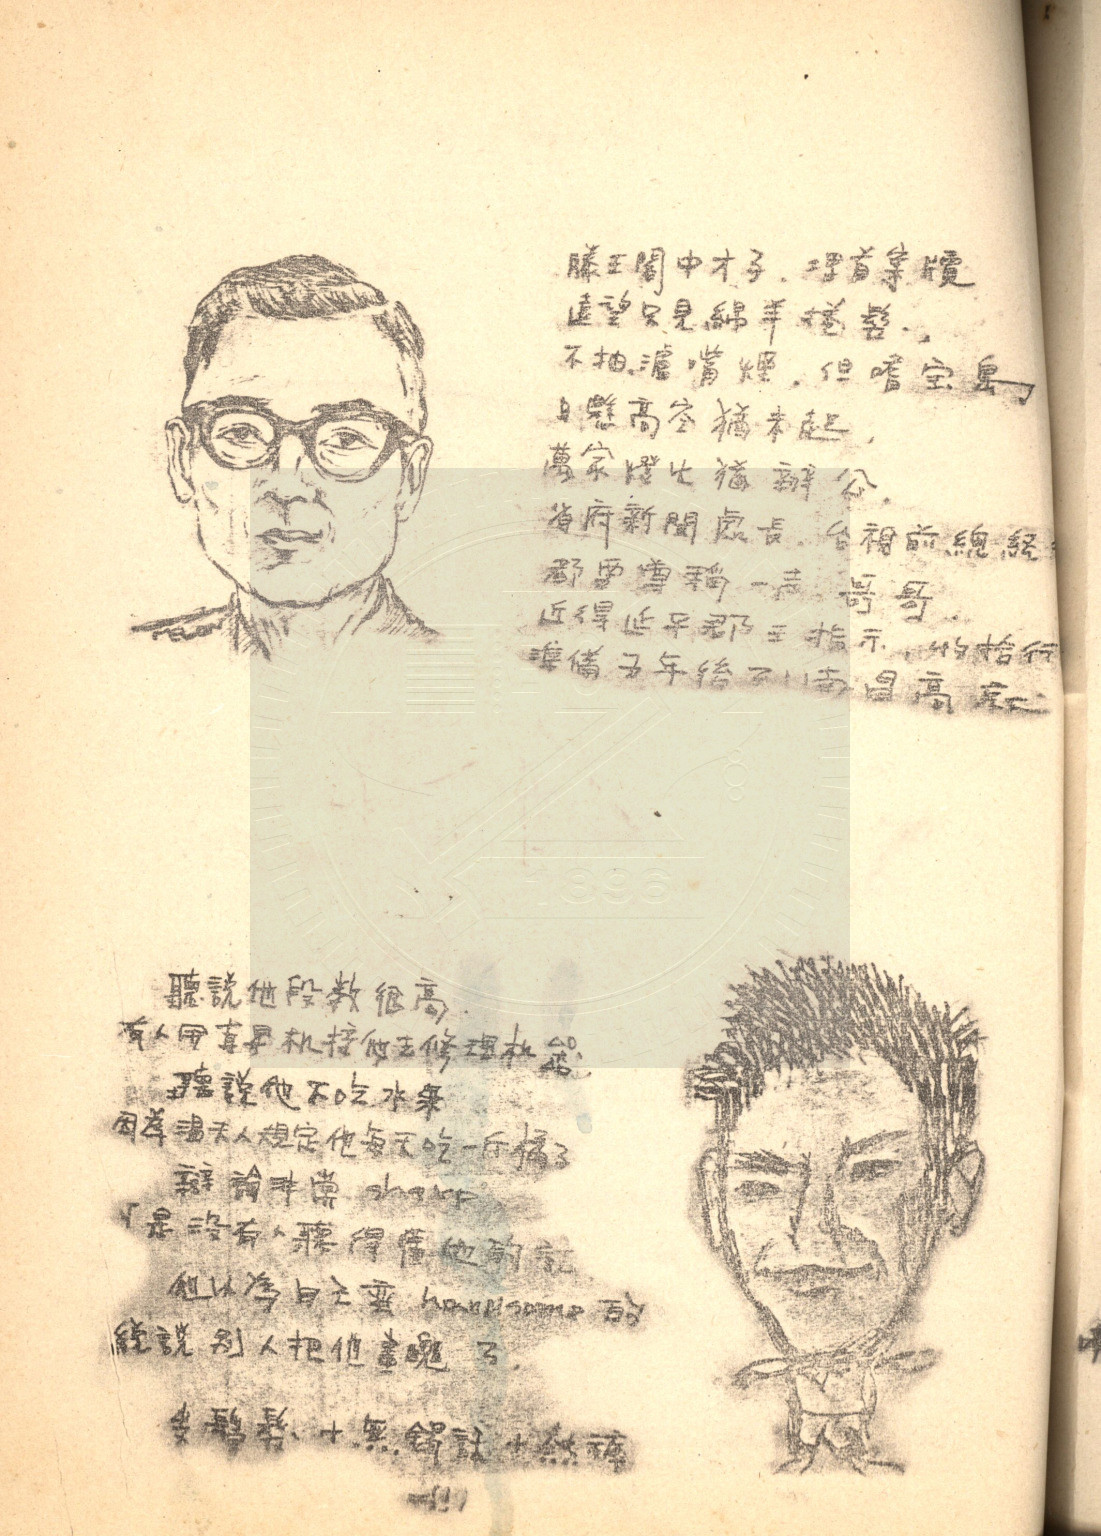 滕王閣中才子.埋首案牘
遠望只見綿羊捲髮.
不抽濾嘴煙.但嗜宝島
日懸高空猶未起,
萬家燈火猶辦公.
省府新聞處長.台視前總經
都要尊稱一声 哥哥.
近得延平郡王指示,收拾行
準備五年後到南昌高就
1896
聽說他段數很高.
有人用直昇机接他去修理机器.
聽說他不吃水菓
因為 温夫人規定他每天吃一斤橘子
辯論非常 sharp
「是沒有人聽得懂他的
他以為自己蠻 handsome 的
總說別人把他畫醜了.
捲髮 + 無錫話 + 熱褲